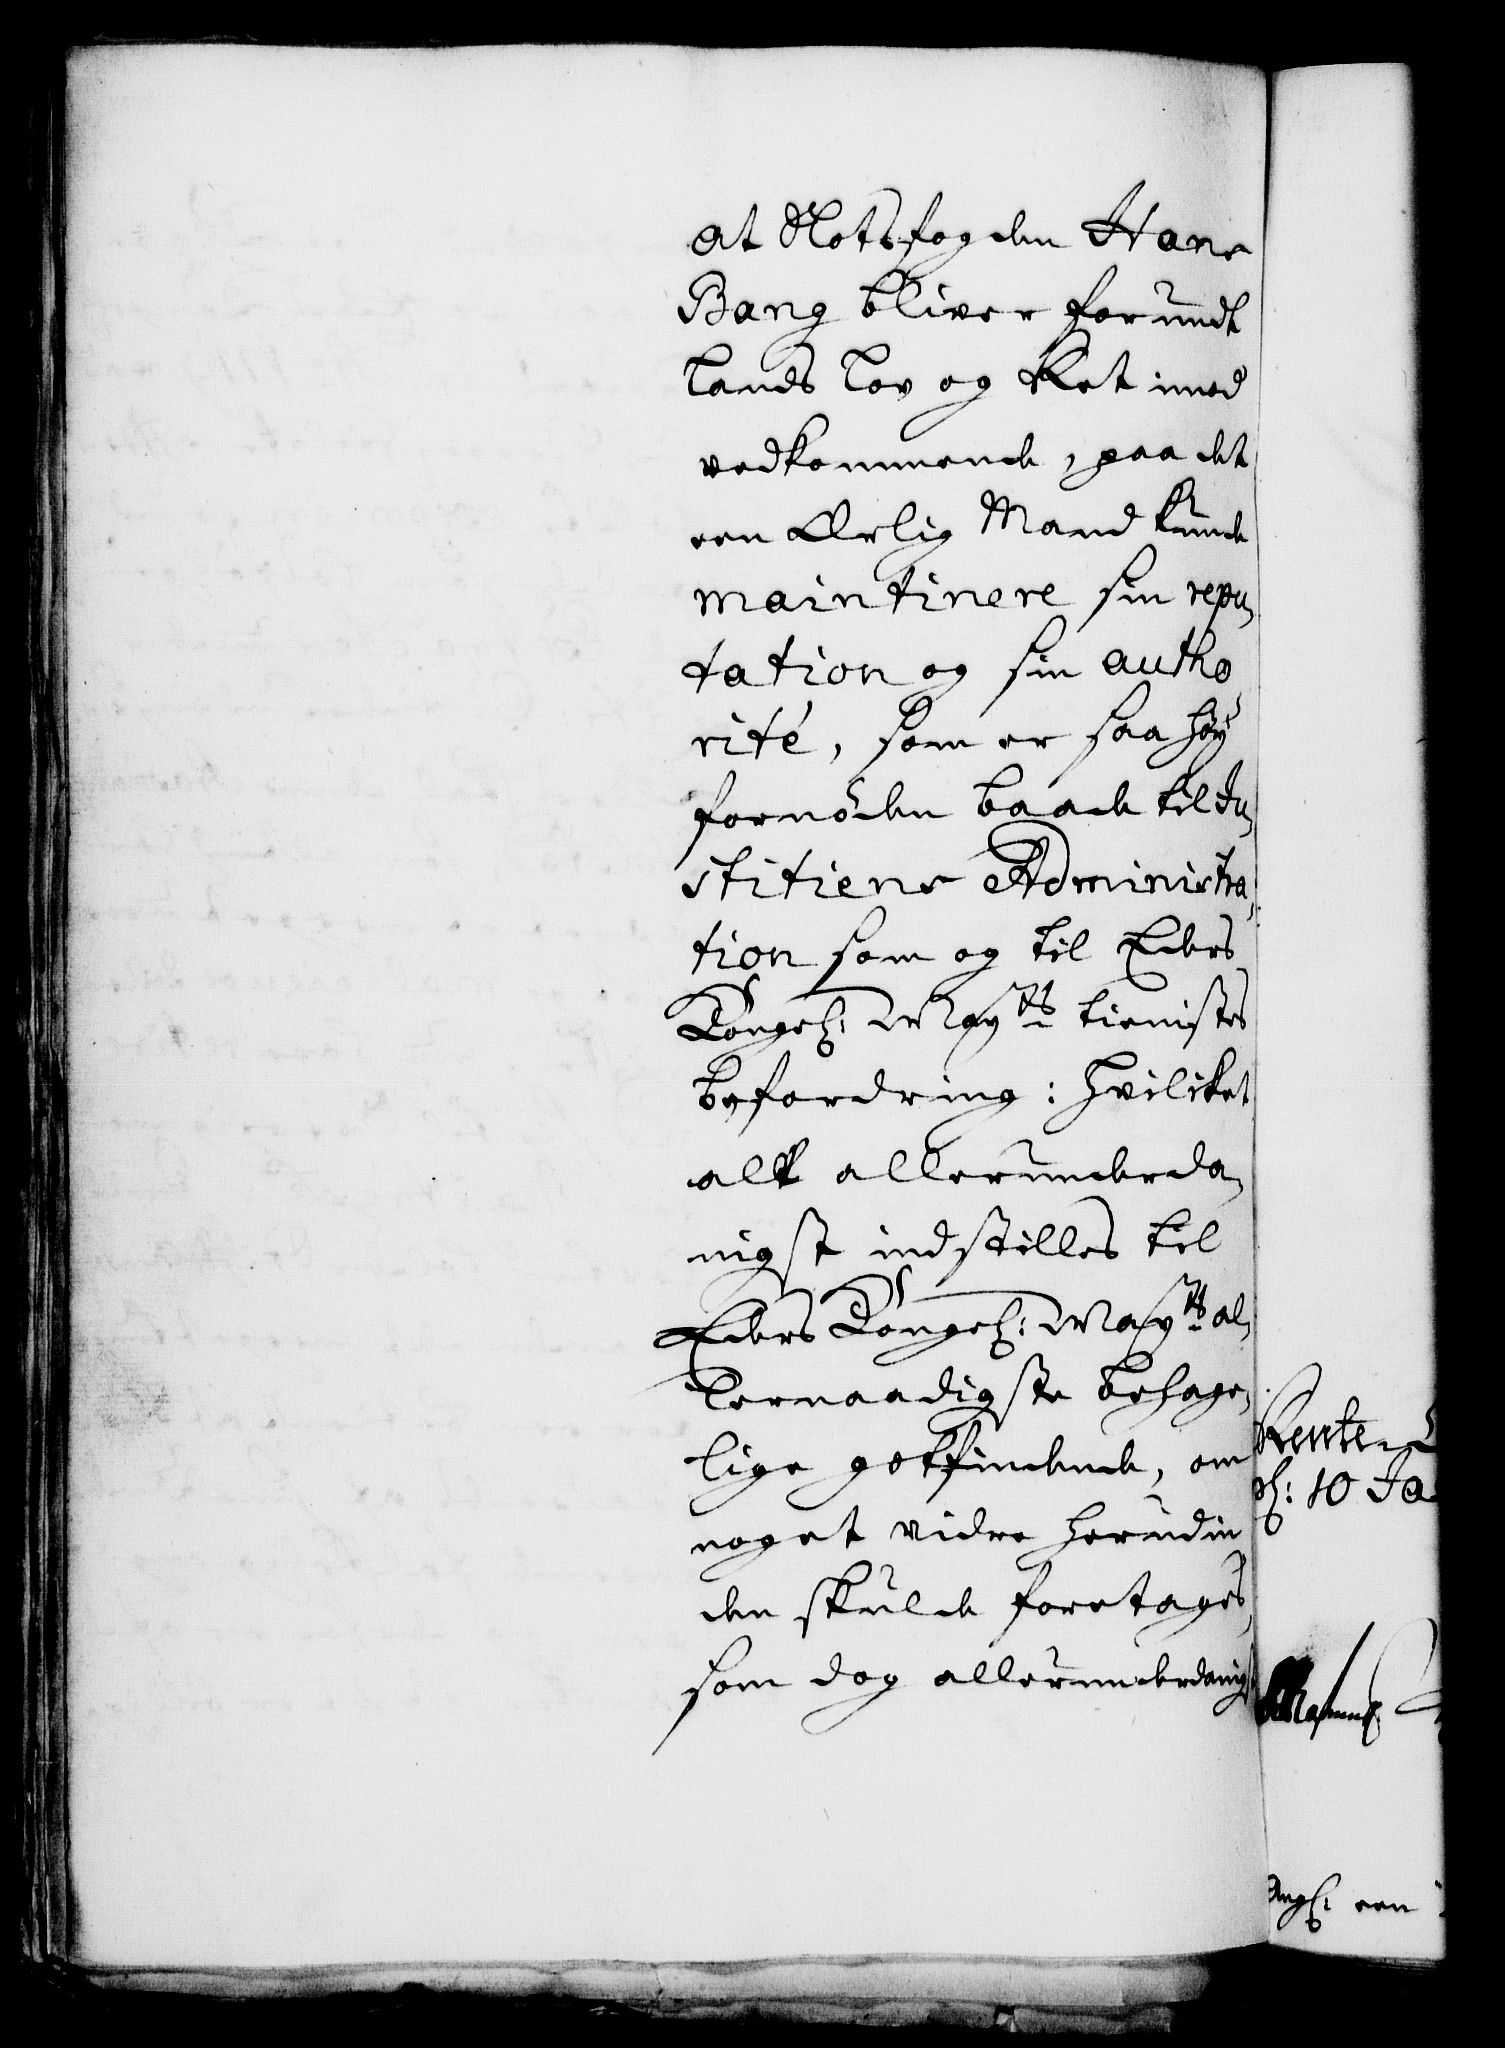 at Slotsfogden Hans
Bang bliver forundt
Lands Lov og Ret imod
vedkommende, paa det
een Ærlig Mand kunde
maintinere sin repu-
tation og sin autho
rité, som er saa høy
fornöden baade til Ju-
stitiens Administra-
tion som og til Eders
Kongel: Mayts tienistes
befordring: hvilket
alt allerunderda-
nigst indstilles til
Eders Kongel: Mayts al-
lernaadigste behage-
lige gotfindende, om
noget vidre herudin
den skulde foretages,
som dog allerunderdanigst
Rente
d: 10 Ja
angl: een